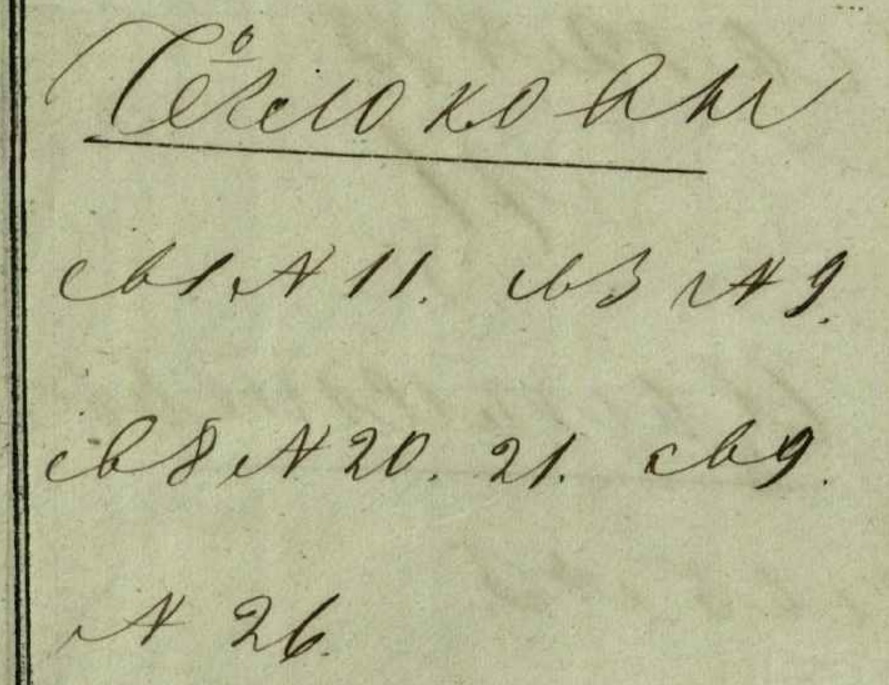 св 1 № 11. св 3 № 9.
св 8 № 20. 21. св 9.
№ 26.